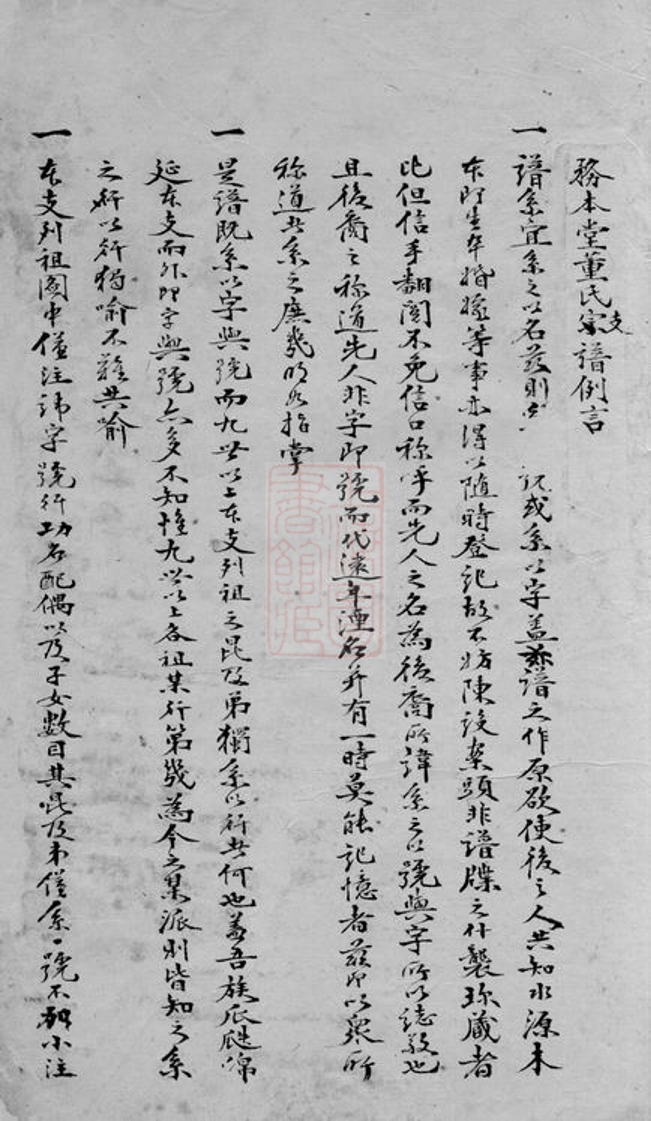 務本堂董氏宗支譜例言
一 譜系宜系之以名茲則 或系以字蓋茲譜之作原欲使後之人共知水源木
本即生卒婚嫁等事亦得以隨時登記故不妨陳設案頭非譜牒之什襲珍藏者
比但信手翻閱不免信口称呼而先人之名為後裔所諱系之以號與字所以誌敬也
且後裔之称道先人非字即號而代遠年湮名并有一時莫能記憶者茲即以眾所
称道者系之庶幾明如指掌
一 是譜既系以字與號而九世以上本支列祖之昆及弟獨系以行者何也蓋吾族瓜瓞綿
延本支而外即字與號亦多不知惟九世以上各祖某行第幾為今之某派則皆知之系
之所以行獨喻不難共喻
一 本支列祖圖中僅注諱字號行功名配偶以及子女數目其昆及弟僅系一號不加小注